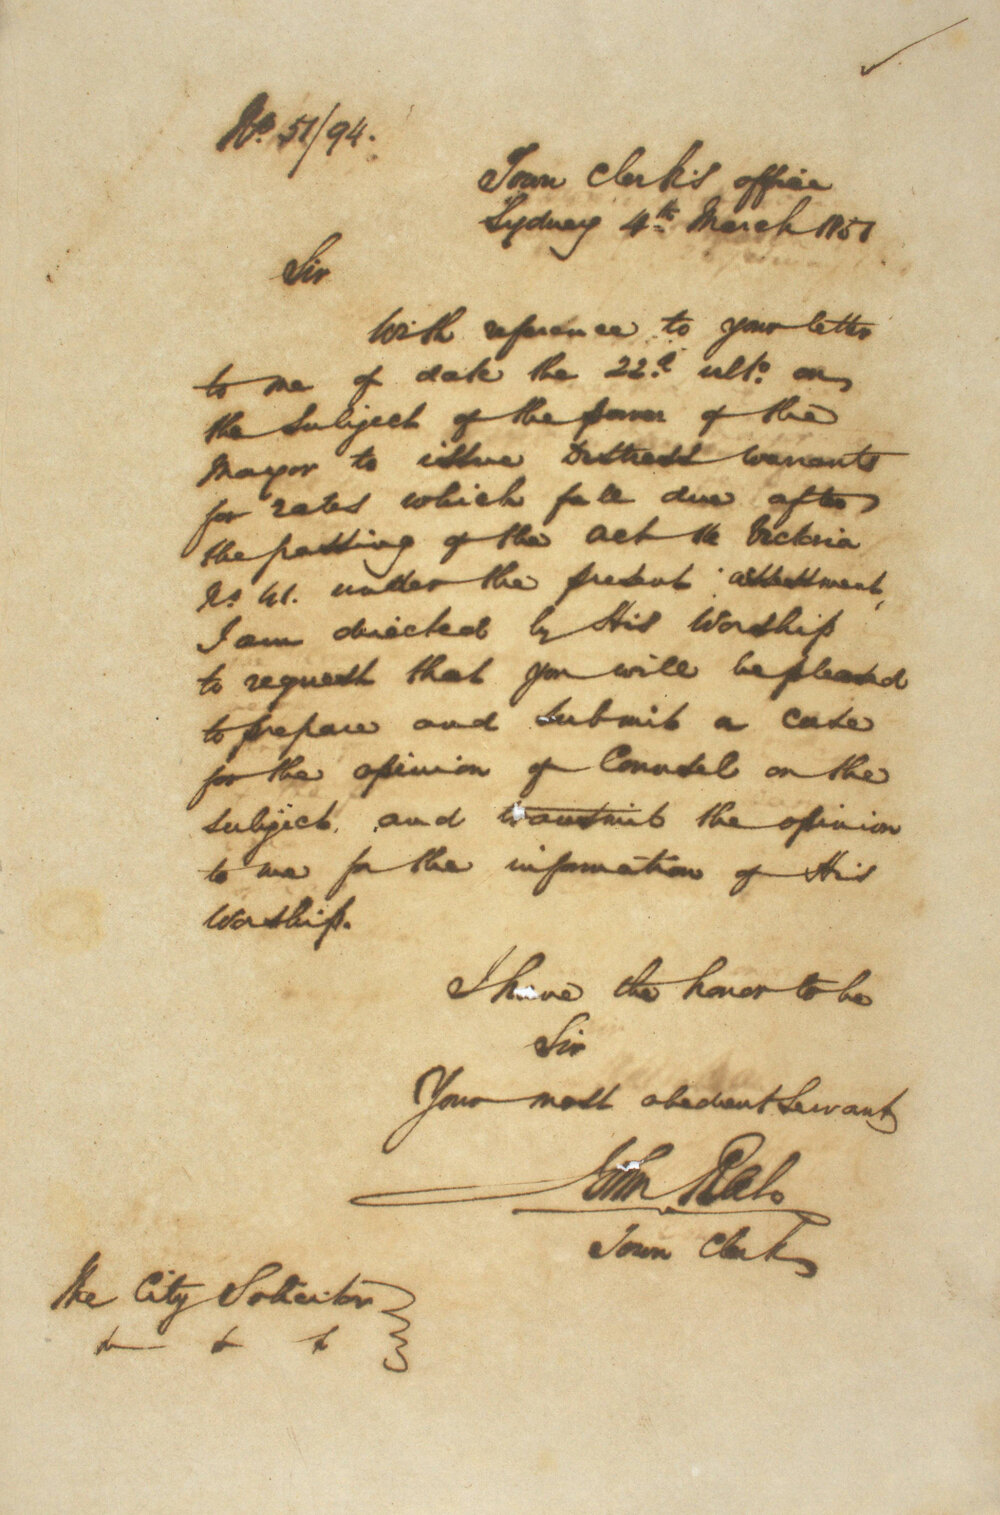 No. 51/94.
Town Clerk's office
Sydney 4th March 1851
Sir
With reference to your letter
to me of date the 22d. ulto. on
the subject of the power of the
Mayor to issue Distress warrants
for rates which fall due after
the passing of the Act 14 Victoria
No. 41. under the present assessment,
I am directed by His Worship
to request that you will be pleased
to prepare and submit a case
for the opinion of Counsel on the
subject, and transmit the opinion
to me for the information of His
Worship.
I have the honor to be
Sir
Your most obedient Servant
John Rae
Town Clerk
The City Solicitor